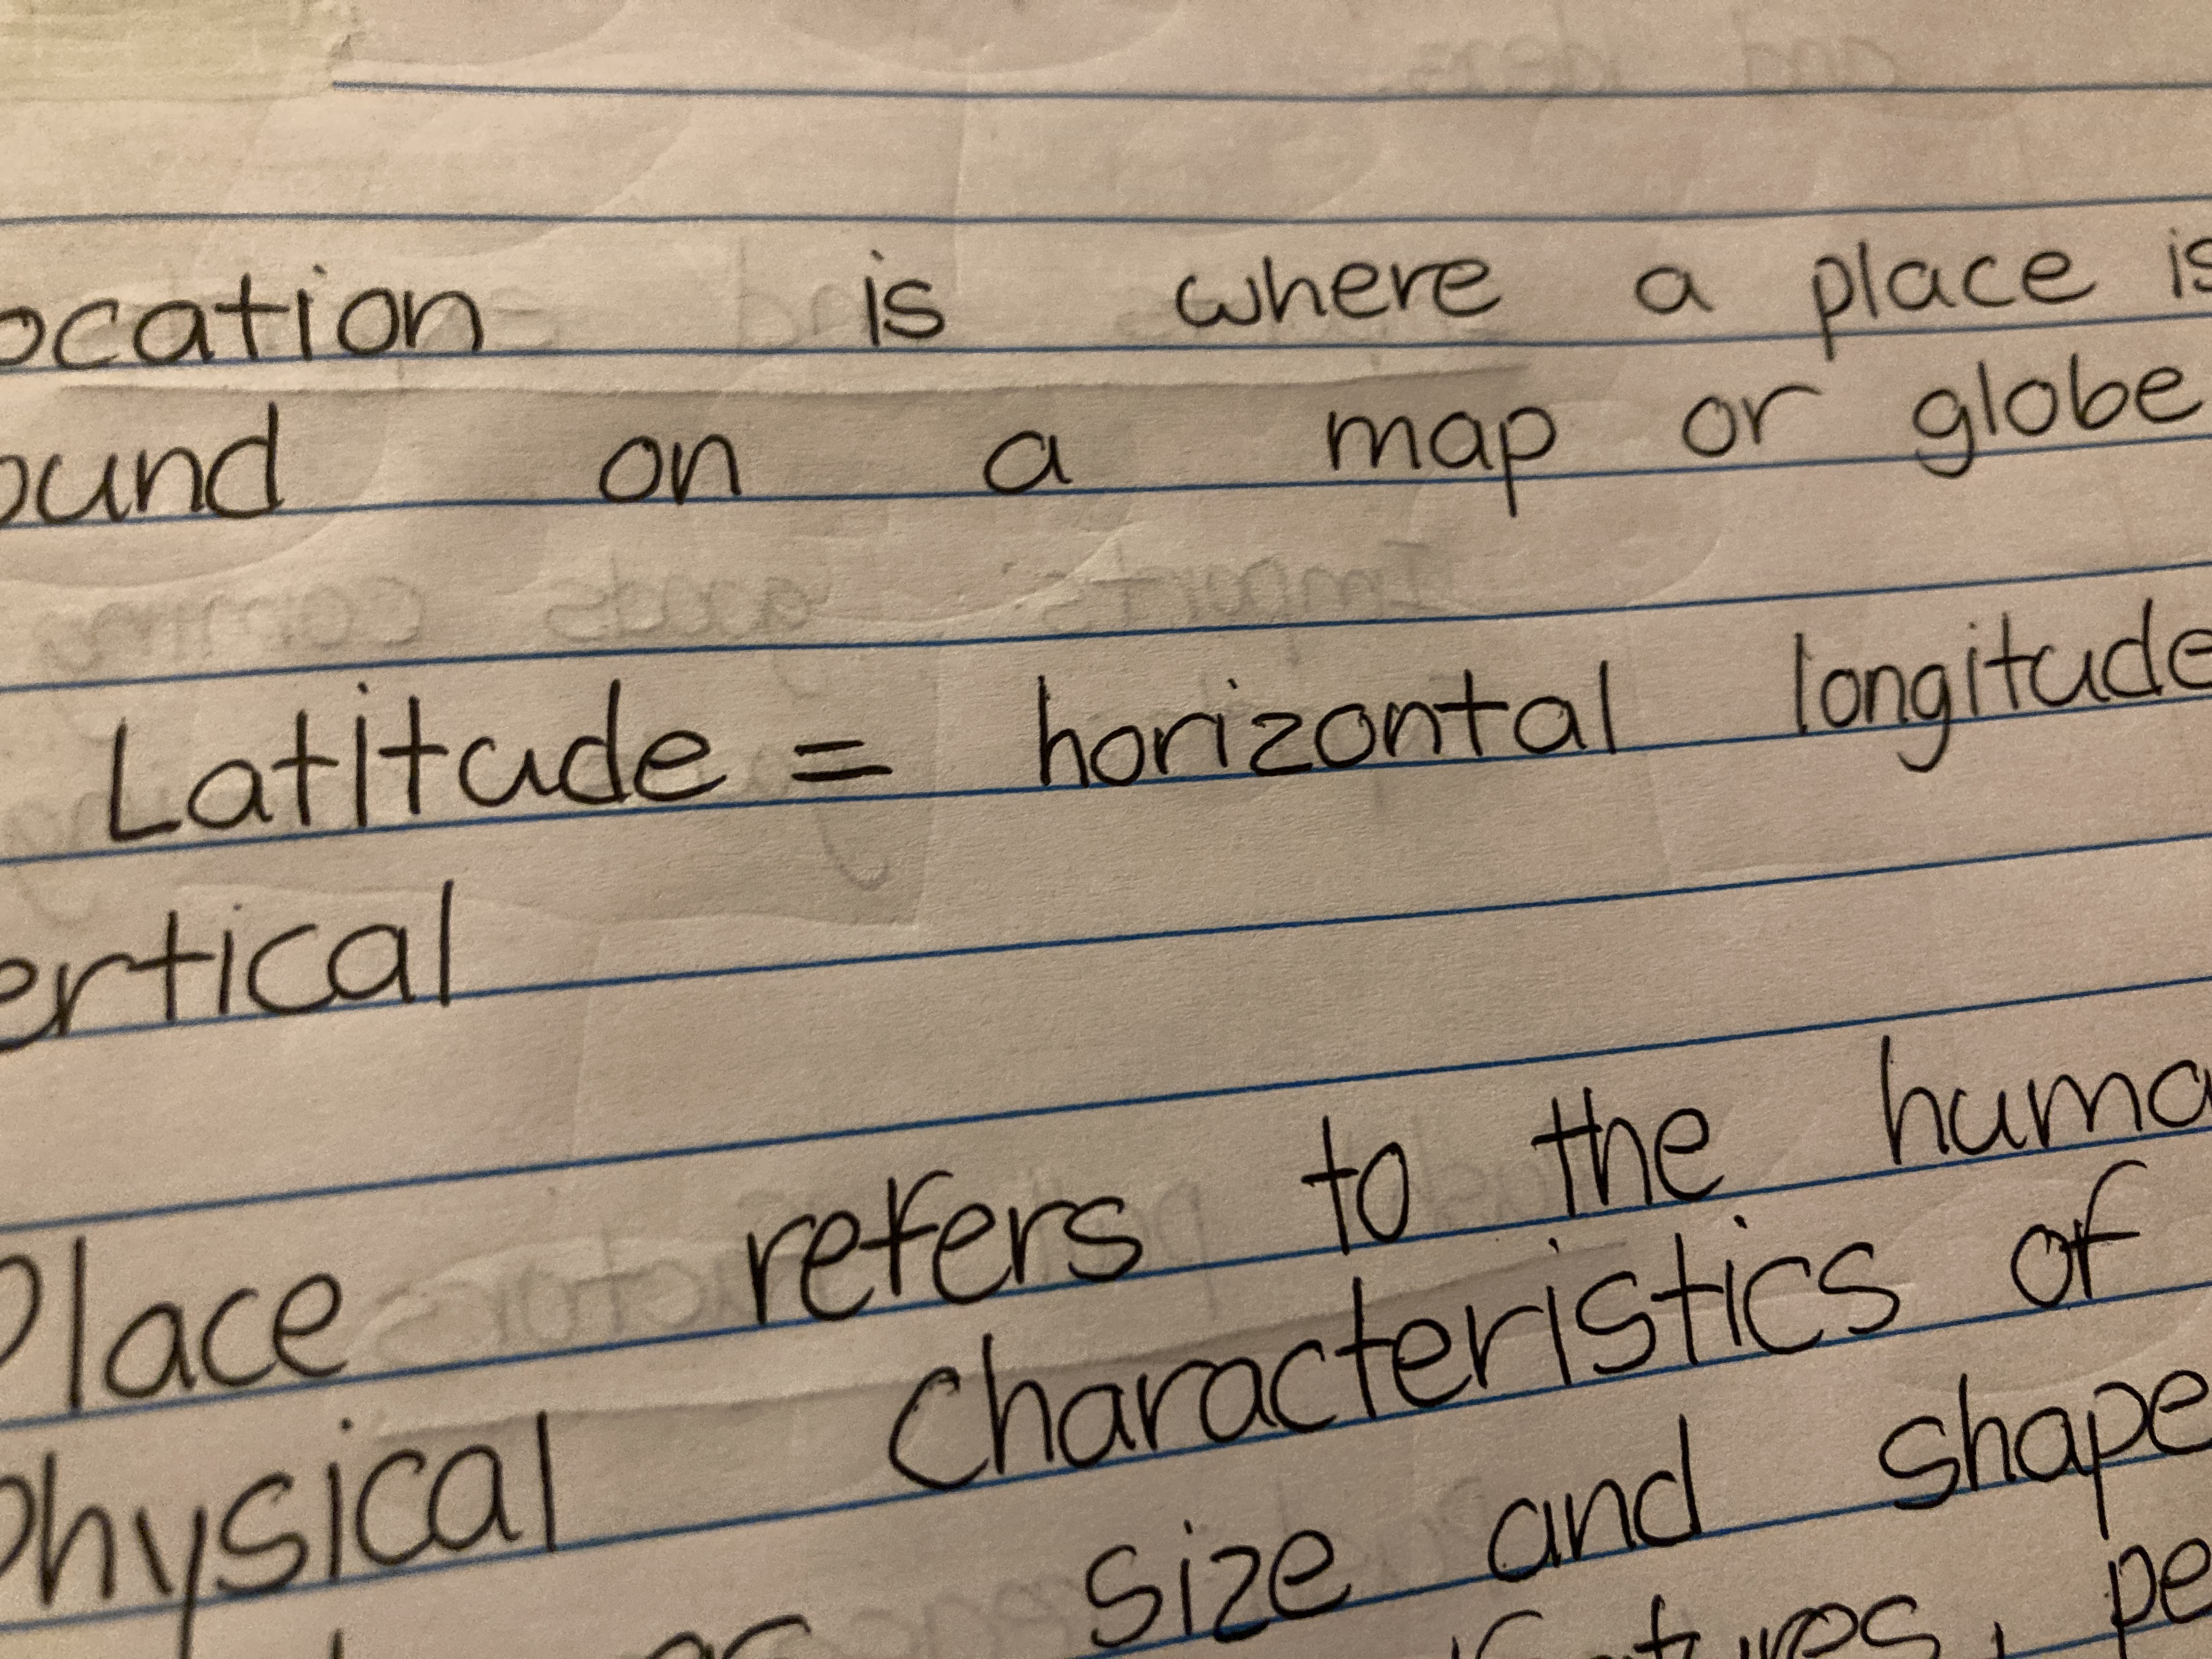 ocation is where a place is
ound on a map or globe
Latitude = horizontal longitude
ertical
Place refers to the huma
Physical characteristics of
size and shape
pe